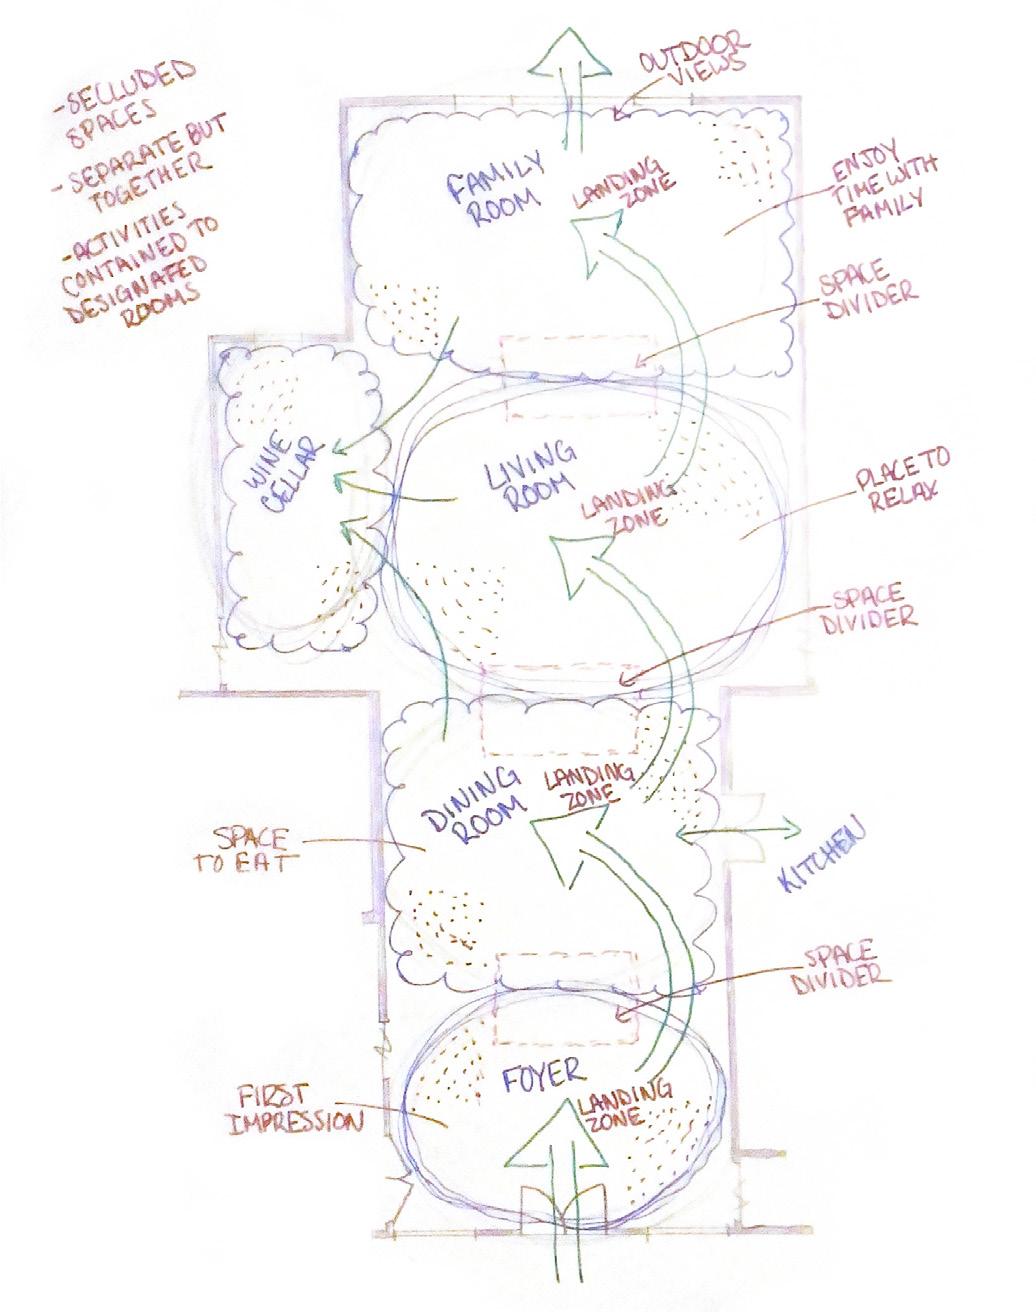 -SECLUDED
SPACES
- SEPARATE BUT
TOGETHER
-ACTIVITIES
CONTAINED TO
DESIGNATED
ROOMS
OUTDOOR
VIEWS
FAMILY
ROOM
LANDING
ZONE
ENJOY
TIME WITH
FAMILY
SPACE
DIVIDER
WINE
CELLAR
LIVING
ROOM
LANDING
ZONE
PLACE TO
RELAX
SPACE
DIVIDER
DINING
ROOM
LANDING
ZONE
SPACE
TO EAT
KITCHEN
SPACE
DIVIDER
FOYER
LANDING
ZONE
FIRST
IMPRESSION